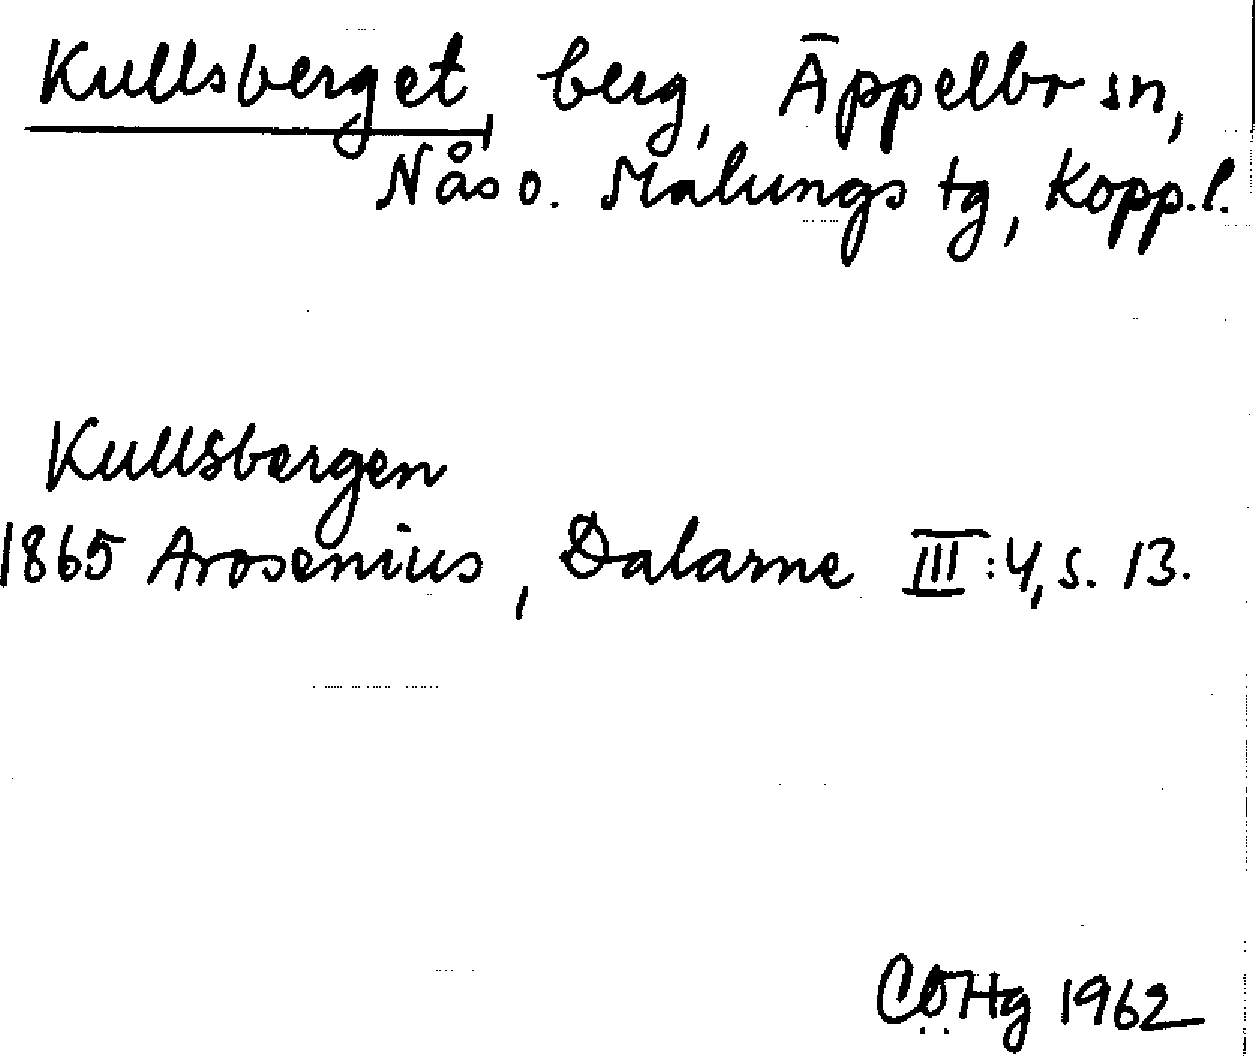 Kullsberget berg, Äppelbo sn,
Nås o. Malungs tg, Kopp.l.
Kullsbergen
1865 Arosenius, Dalarne III:4, s. 13.
CÖHg 1962